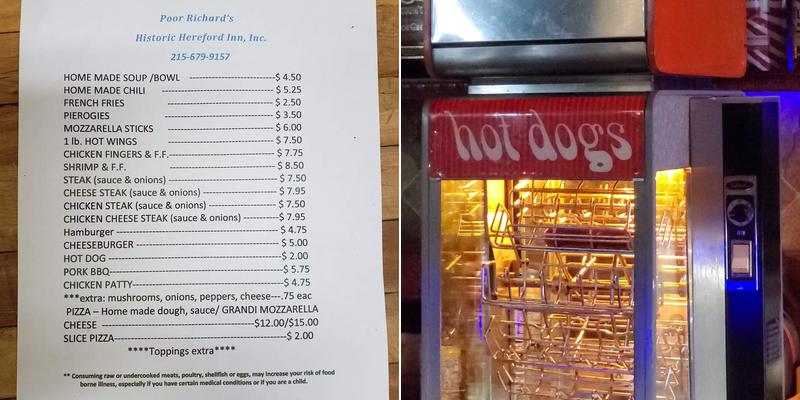 Poor Richard's
Historic Hereford Inn, Inc.
215-679-9157
HOME MADE SOUP /BOWL --------------------------$ 4.50
HOME MADE CHILI -----------------------------------$ 5.25
FRENCH FRIES ---------------------------------$ 2.50
PIEROGIES ---------------------------------$ 3.50
MOZZARELLA STICKS ---------------------------------$ 6.00
1 lb. HOT WINGS ---------------------------------$ 7.50
CHICKEN FINGERS & F.F.---------------------------------$ 7.75
SHRIMP & F.F. -------------------------------------------$ 8.50
STEAK (sauce & onions) ---------------------------------$ 7.50
CHEESE STEAK (sauce & onions) -----------------------$ 7.95
CHICKEN STEAK (sauce & onions) ----------------------$ 7.50
CHICKEN CHEESE STEAK (sauce & onions) -----------$7.95
Hamburger -----------------------------------------------$ 4.75
CHEESEBURGER ------------------------------------------$ 5.00
HOT DOG --------------------------------------------------$2.00
PORK BBQ--------------------------------------------------$ 5.75
CHICKEN PATTY--------------------------------------------$ 4.75
***extra: mushrooms, onions, peppers, cheese---.75 eac
PIZZA – Home made dough, sauce/ GRANDI MOZZARELLA
CHEESE -------------------------------------------$12.00/$15.00
SLICE PIZZA-------------------------------------------------$ 2.00
****Toppings extra****
** Consuming raw or undercooked meats, poultry, shellfish or eggs, may increase your risk of food
borne illness, especially if you have certain medical conditions or if you are a child.
hot dogs